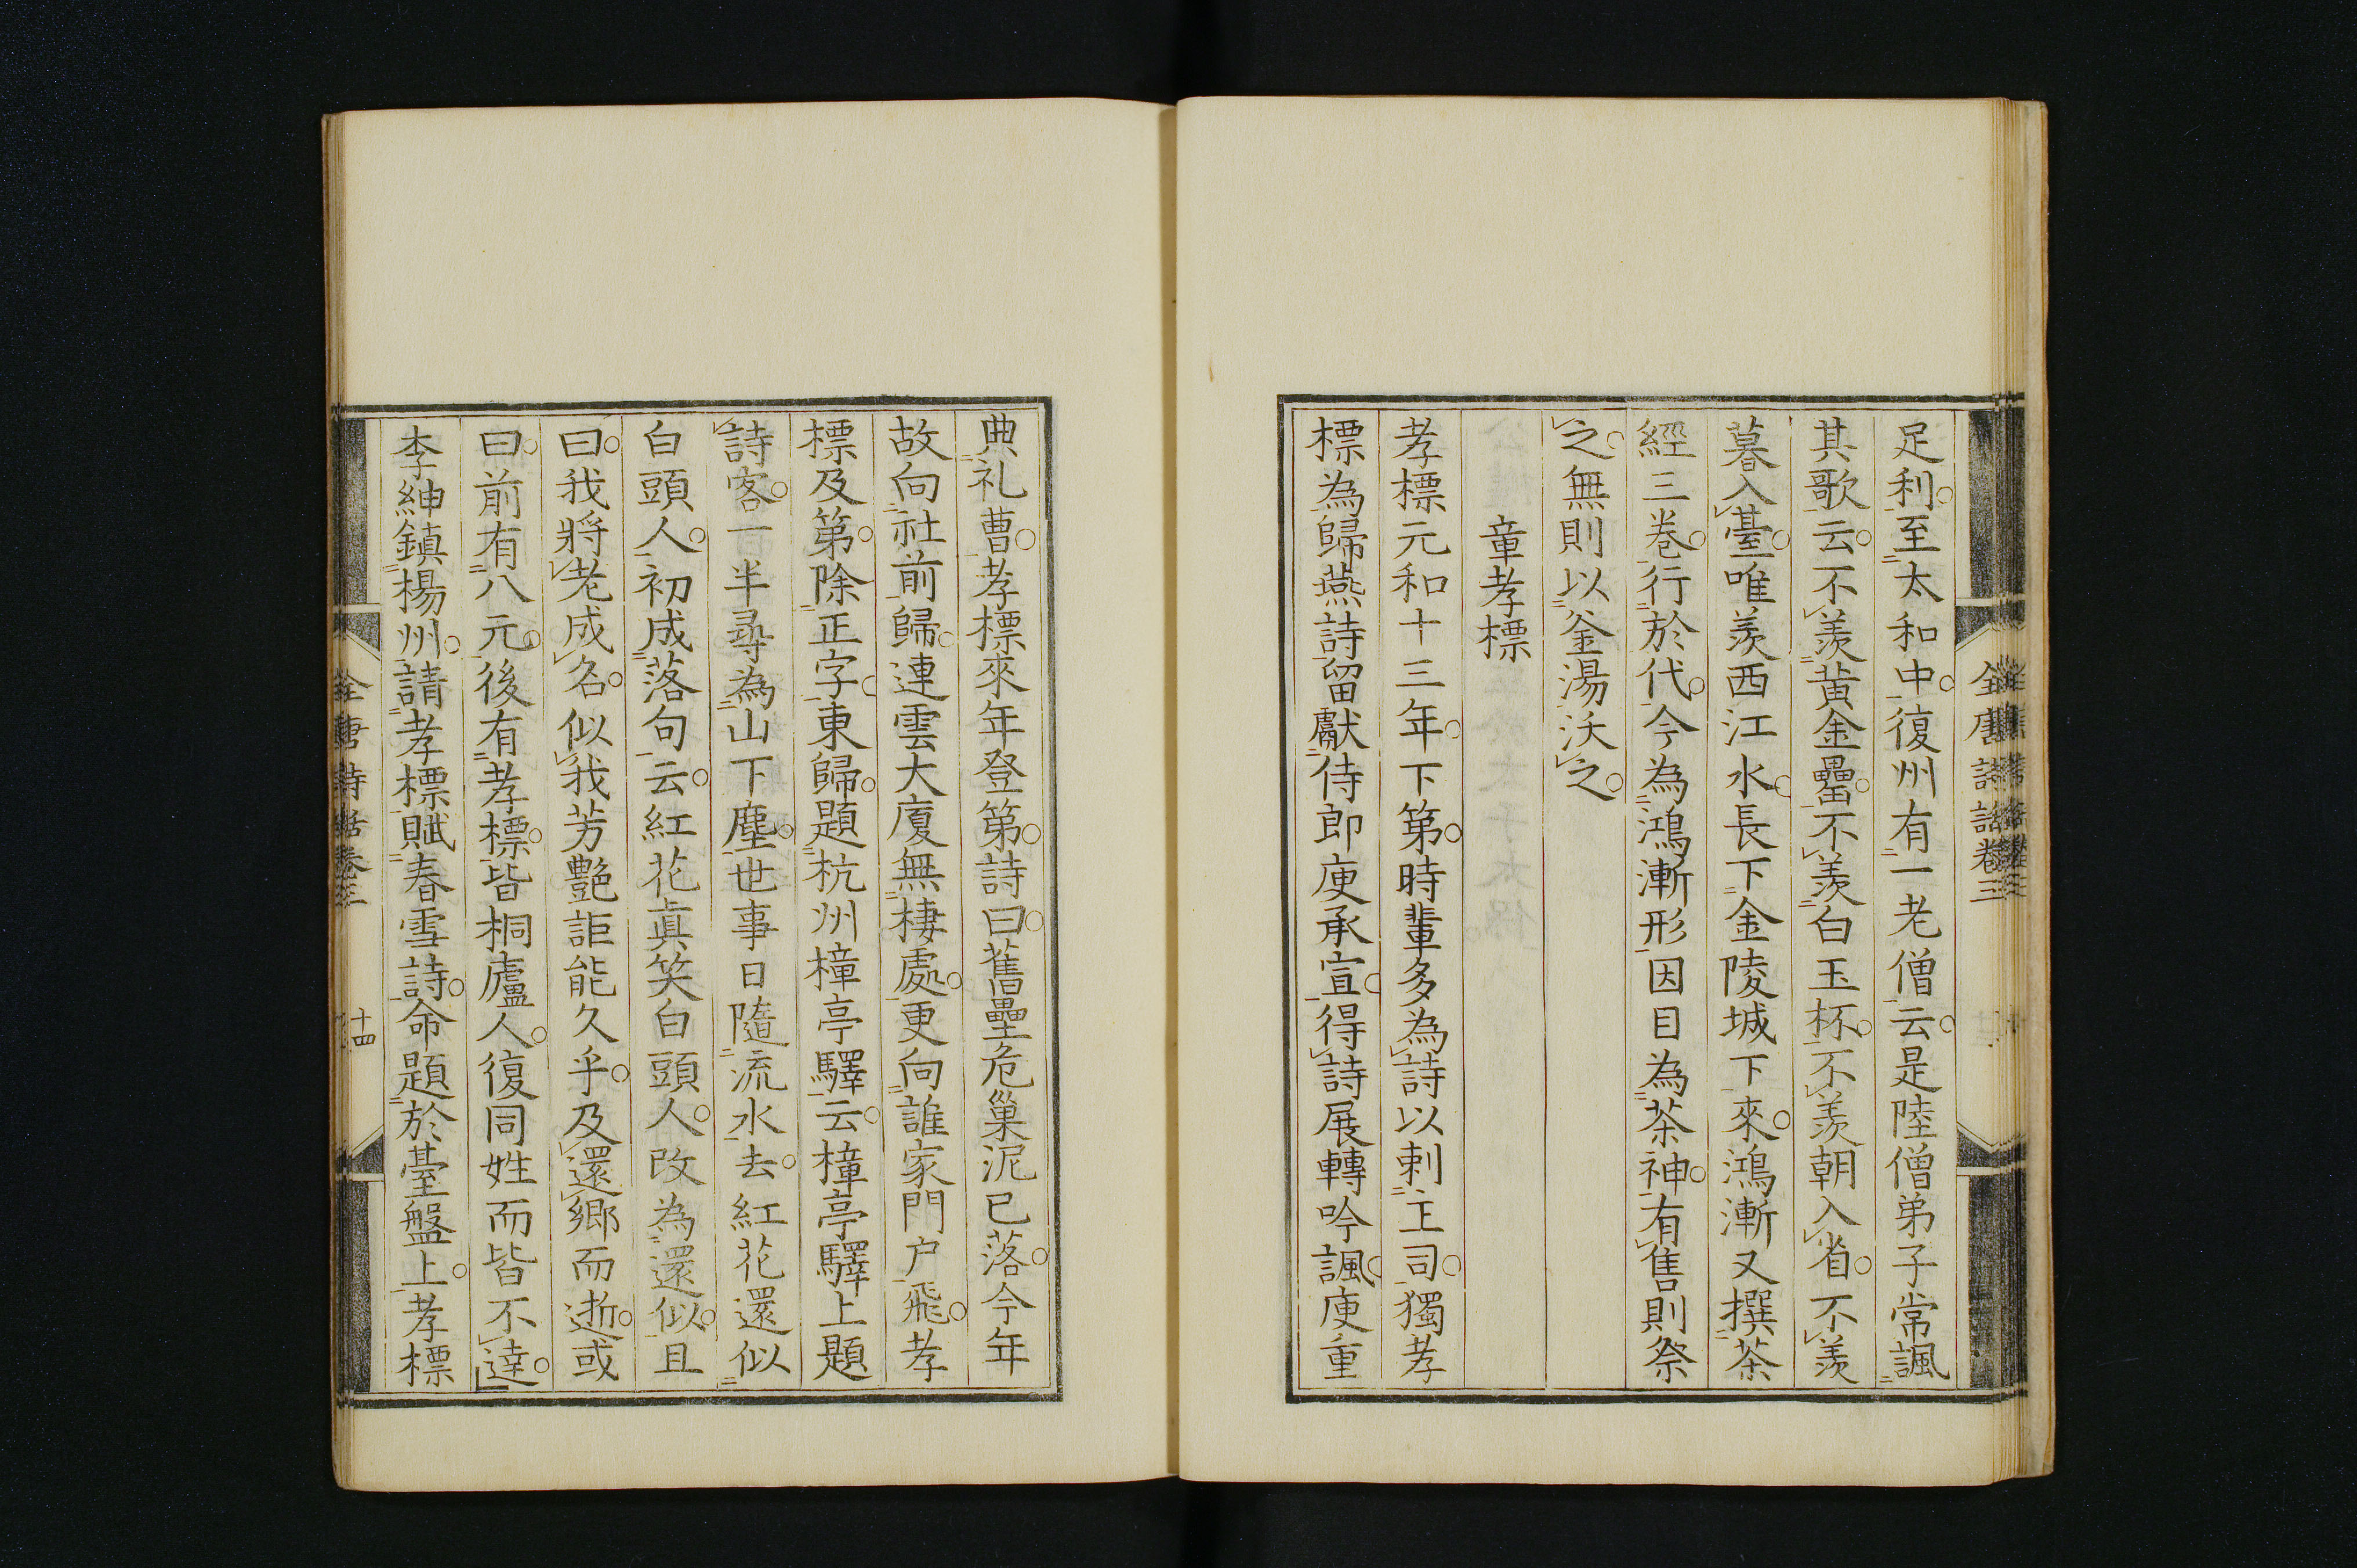 全唐詩話卷三
足利至太和中復州有一老僧云是陸僧弟子常諷
其歌云不羨黃金罍不羨白玉杯不羨朝入省不羨
暮入臺唯羨西江水長下金陵城下來鴻漸又撰茶
經三卷行於代今為鴻漸形因目為茶神有售則祭
之無則以釜湯沃之
章孝標
孝標元和十三年下第時輩多為詩以刺主司獨孝
標為歸燕詩留獻侍郎庾承宣得詩展轉吟諷庾重
典礼曹孝標來年登第詩曰舊壘危巢泥已落今年
故向社前歸連雲大廈無棲處更向誰家門户飛孝
標及第除正字東歸題杭州樟亭驛云樟亭驛上題
詩客一半尋為山下塵世事日隨流水去紅花還似
白頭人初成落句云紅花真笑白頭人改為還似且
曰我將老成名似我芳艷詎能久乎及還鄉而逝或
曰前有八元後有孝標皆桐廬人復同姓而皆不達
李紳鎮楊州請孝標賦春雪詩命題於臺盤上孝標
全唐詩話卷三
十四